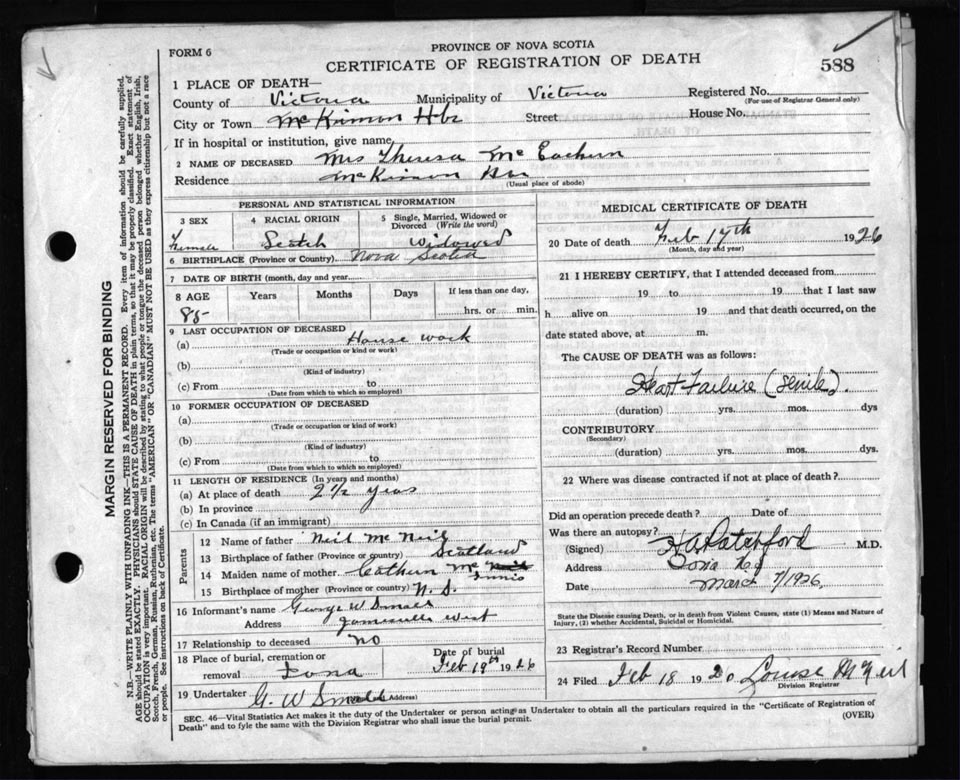 PROVINCE OF NOVA SCOTIA
FORM 6
CERTIFICATE OF REGISTRATION OF DEATH
588
1 PLACE OF DEATH—
County of Victoria Municipality of Victoria Registered No.
(For use of Registrar General only)
City or Town McKinnon Hbr Street House No.
If in hospital or institution, give name
2 NAME OF DECEASED Mrs Theresa Mc Eachern
Residence McKinnon Hbr
(Usual place of abode)
PERSONAL AND STATISTICAL INFORMATION
3 SEX Female
4 RACIAL ORIGIN Scotch
5 Single, Married, Widowed or Divorced (Write the word) Widowed
6 BIRTHPLACE (Province or Country) Nova Scotia
7 DATE OF BIRTH (month, day and year)
8 AGE Years Months Days If less than one day, hrs. or min.
85
9 LAST OCCUPATION OF DECEASED
(a) House work
(Trade or occupation or kind or work)
(b)
(Kind of industry)
(c) From to
(Date from which to which so employed)
10 FORMER OCCUPATION OF DECEASED
(a)
(Trade or occupation or kind of work)
(b)
(Kind of industry)
(c) From to
(Date from which to which so employed)
11 LENGTH OF RESIDENCE (In years and months)
(a) At place of death 2½ years
(b) In province
(c) In Canada (if an immigrant)
Parents
12 Name of father Neil Mc Neil
13 Birthplace of father (Province or country) Scotland
14 Maiden name of mother Cathern Mc Innis
15 Birthplace of mother (Province or country) N. S.
16 Informant's name George W Small
Address Jamesville West
17 Relationship to deceased no
18 Place of burial, cremation or removal Iona
Date of burial Feb 19th 1926
19 Undertaker G. W Small (Address)
MEDICAL CERTIFICATE OF DEATH
20 Date of death Feb 17th 1926
(Month, day and year)
21 I HEREBY CERTIFY, that I attended deceased from
19 to 19 that I last saw
h alive on 19 and that death occurred, on the
date stated above, at m.
The CAUSE OF DEATH was as follows:
Heart Failure (senile).
(duration) yrs. mos. dys
CONTRIBUTORY
(Secondary)
(duration) yrs. mos. dys.
22 Where was disease contracted if not at place of death?
Did an operation precede death? Date of
Was there an autopsy?
(Signed) M.D.
Address Iona N.S
Date March 7/1926
State the Disease causing Death, or in death from Violent Causes, state (1) Means and Nature of
Injury, (2) whether Accidental, Suicidal or Homicidal.
23 Registrar's Record Number
24 Filed Feb 18 1920 Louise McNeil
Division Registrar
SEC. 46—Vital Statistics Act makes it the duty of the Undertaker or person acting as Undertaker to obtain all the particulars required in the "Certificate of Registration of
Death" and to fyle the same with the Division Registrar who shall issue the burial permit.
(OVER)
MARGIN RESERVED FOR BINDING
N.B.—WRITE PLAINLY WITH UNFADING INK—THIS IS A PERMANENT RECORD. Every item of information should be carefully supplied.
AGE should be stated EXACTLY. PHYSICIANS should STATE CAUSE OF DEATH in plain terms, so that it may be properly classified. Exact statement of
OCCUPATION is very important. RACIAL ORIGIN will be described by stating to what people or tongue the deceased person belonged whether English, Irish,
Scotch, French, German, Russian, Ruthenian, etc. The terms "AMERICAN" OR "CANADIAN" MUST NOT BE USED as they express citizenship but not a race
or people. See instructions on back of Certificate.